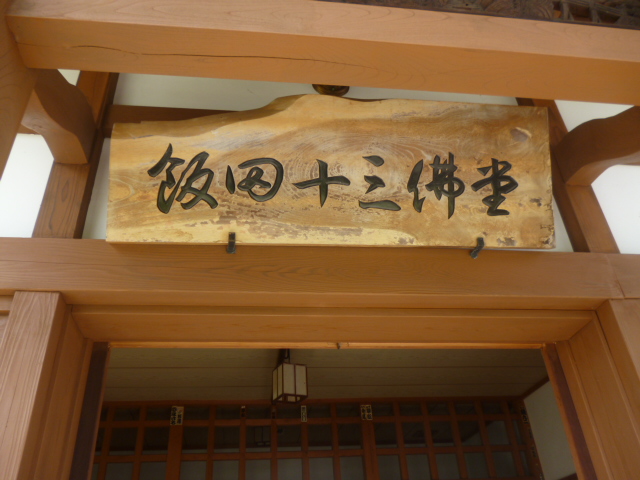 飯田十三佛堂